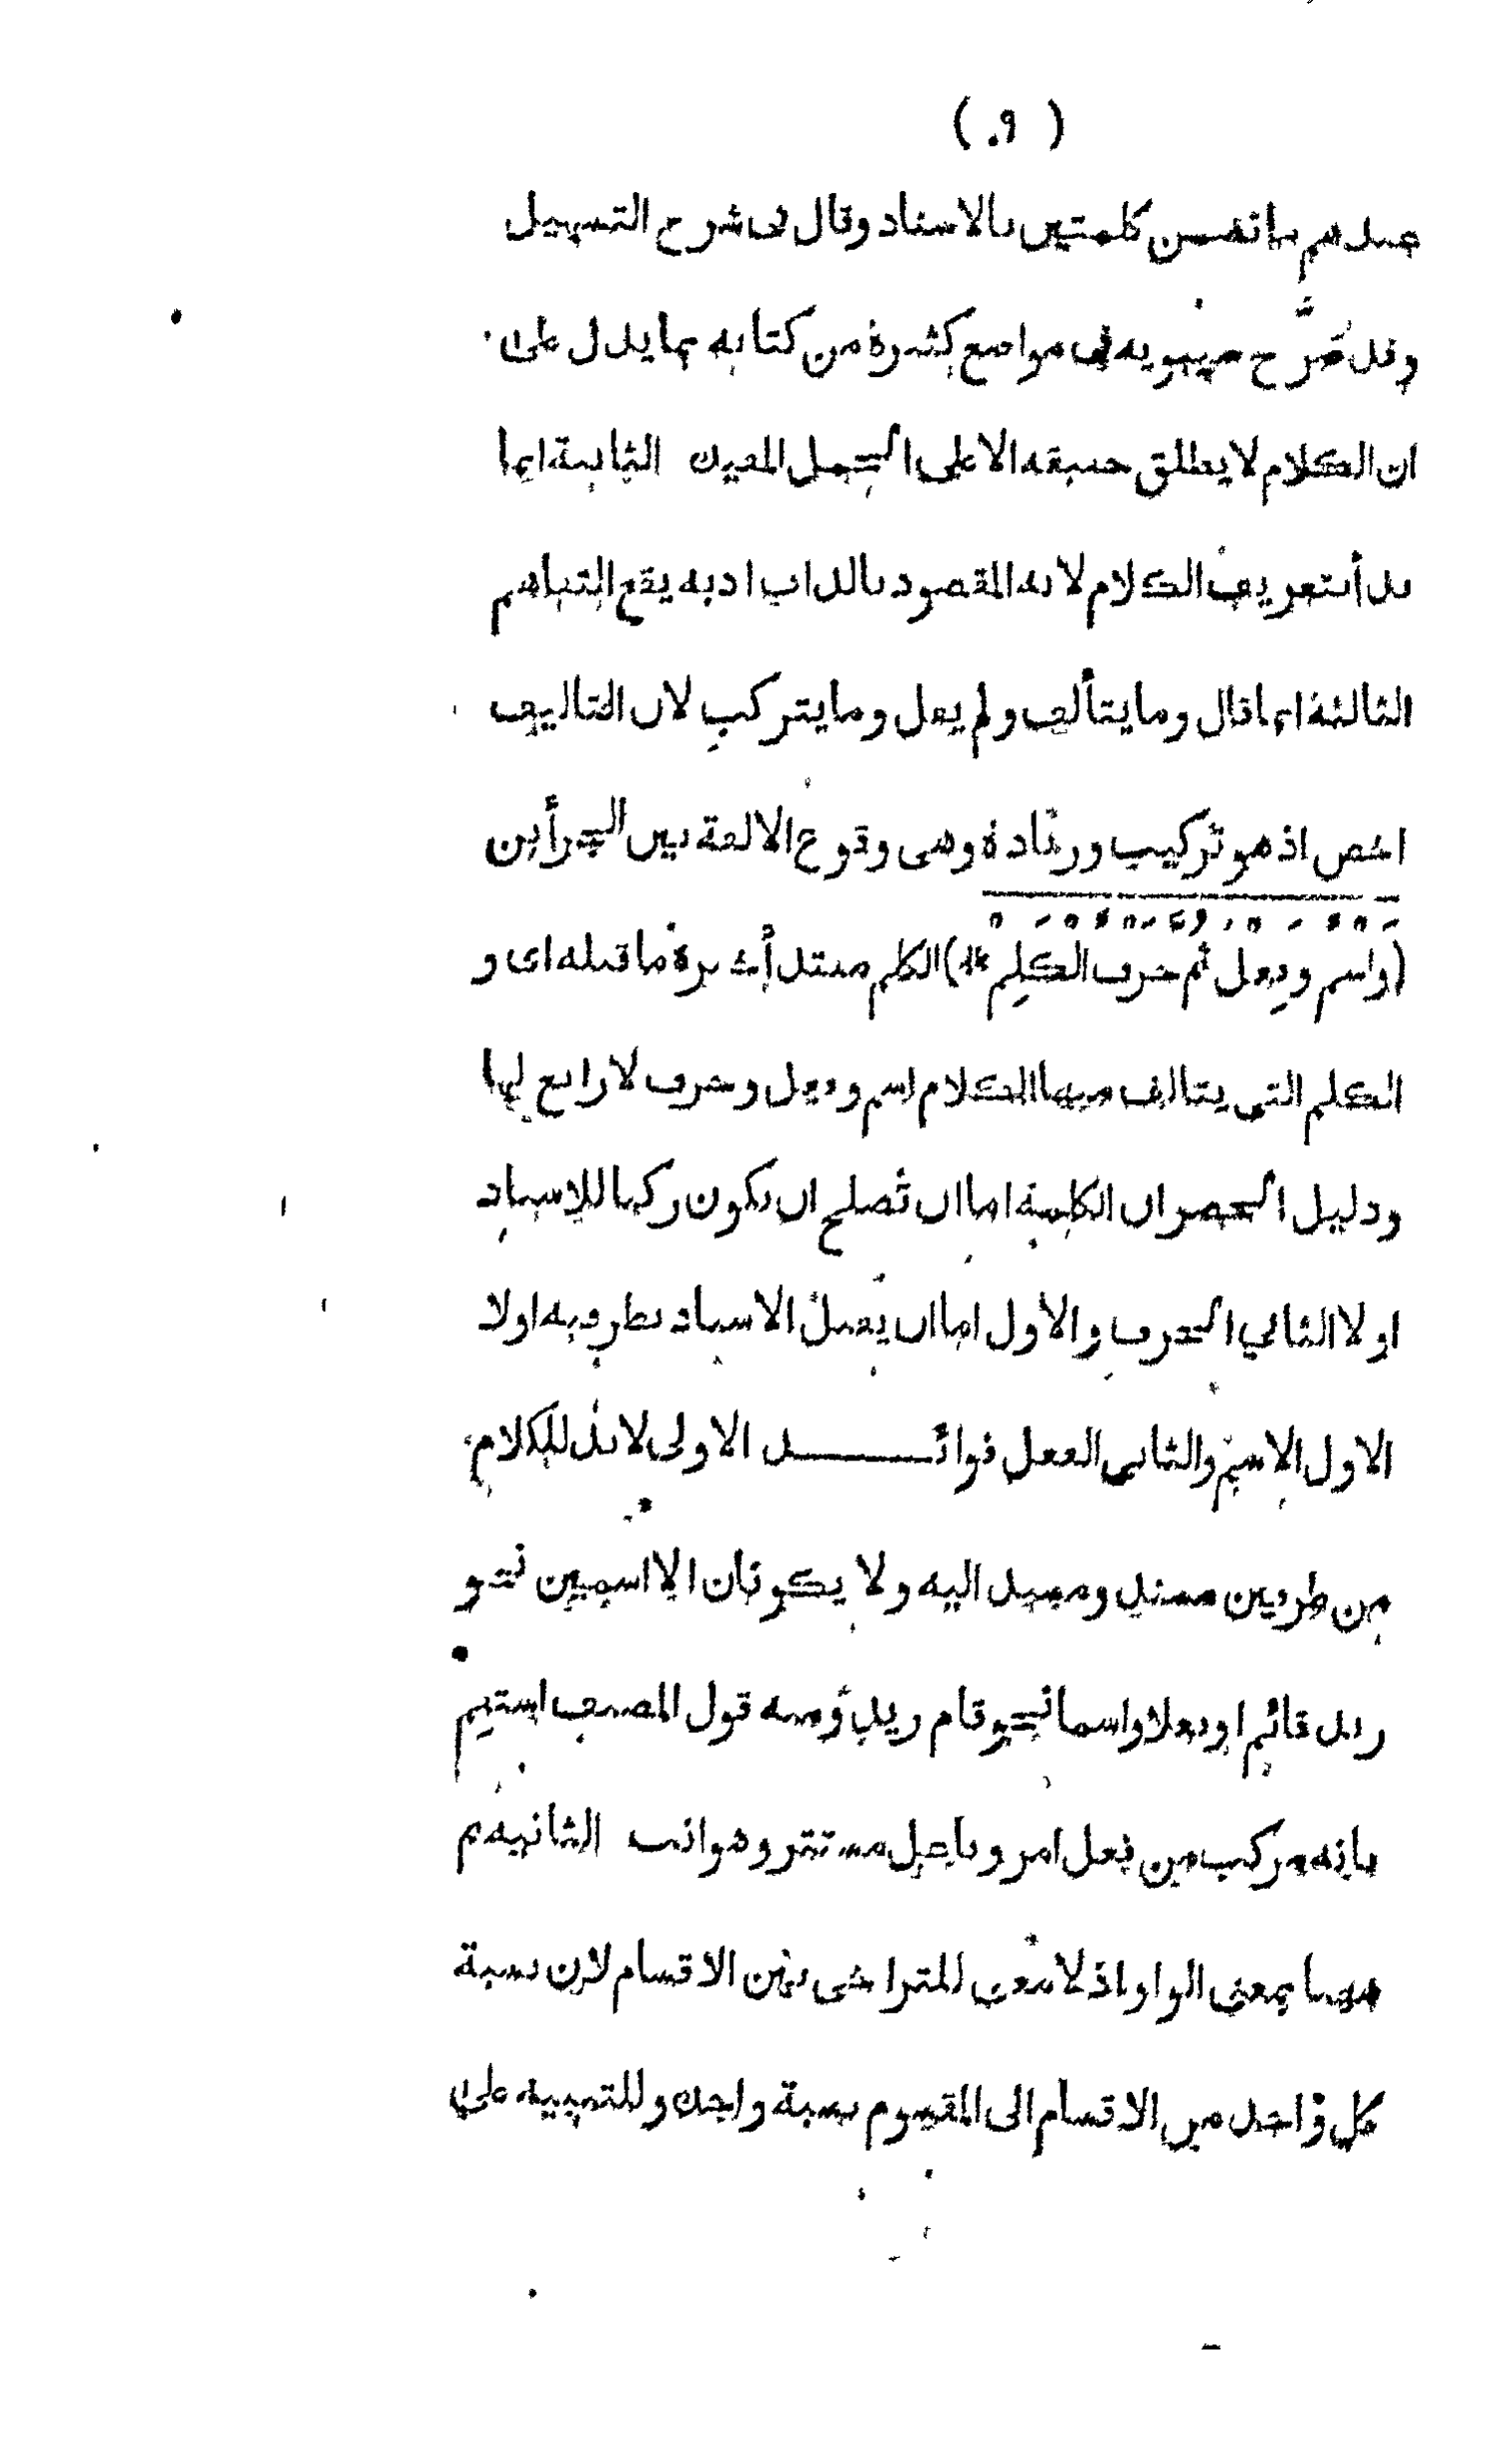 ( ٩. )
عندهم ما تضمن كلمتين بالاسناد وقال فى شرح التسهيل
وقد صَرَّح سيبويه فى مواضع كثيرة من كتابه بما يدل على
ان الكلام لا يطلق حقيقة الا على الجمل المفيدة الثانية انما
بدأ بتعريف الكلام لانه المقصود بالذات اذ به يقع التفاهم
الثالثة انما قال وما يتألف ولم يقل وما يتركب لان التاليف
اخص اذ هو تركيب وزيادة وهى وقوع الالفة بين الجزأين
(واسم وفعل ثم حرف الكلِم *) الكلم مبتدأ خبره ما قبله اى و
الكلم التى يتالف منها الكلام اسم وفعل وحرف لا رابع لها
ودليل الحصر ان الكلمة اما ان تصلح ان تكون ركنا للاسناد
او لا الثاني الحرف والاول اما ان يقبل الاسناد بطرفيه او لا
الاول الاسم والثانى الفعل فوائـــــــد الاولى لا بد للكلام
من طرفين مسند ومسند اليه ولا يكونان الا اسمين نحو
زيد قائم او فعلا واسما نحو قام زيد ومنه قول المصنف استقم
فانه مركب من فعل امر وفاعل مستتر وهو انت الثانية ثم
ههنا بمعنى الواو اذ لا معنى للتراخى بين الاقسام لان نسبة
كل واحد من الاقسام الى المقسوم نسبة واحدة وللتنبيه على